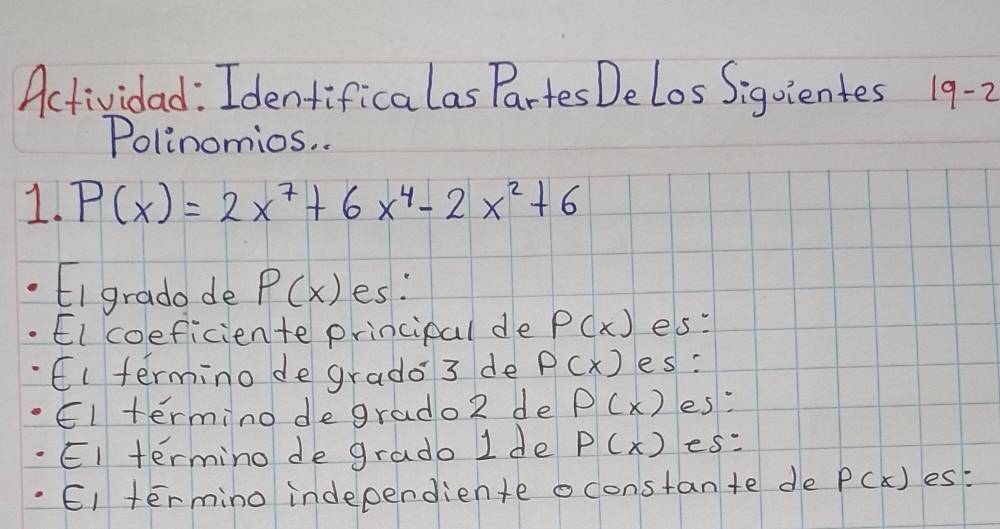 Actividad: Identifica las Partes De los Siguientes 19-2
Polinomios..
1. P(x) = 2x⁷ + 6x⁴ - 2x² + 6
• El grado de P(x) es:
• El coeficiente principal de P(x) es:
• El término de grado 3 de P(x) es:
• El término de grado 2 de P(x) es:
• El término de grado 1 de P(x) es:
• El término independiente o constante de P(x) es: